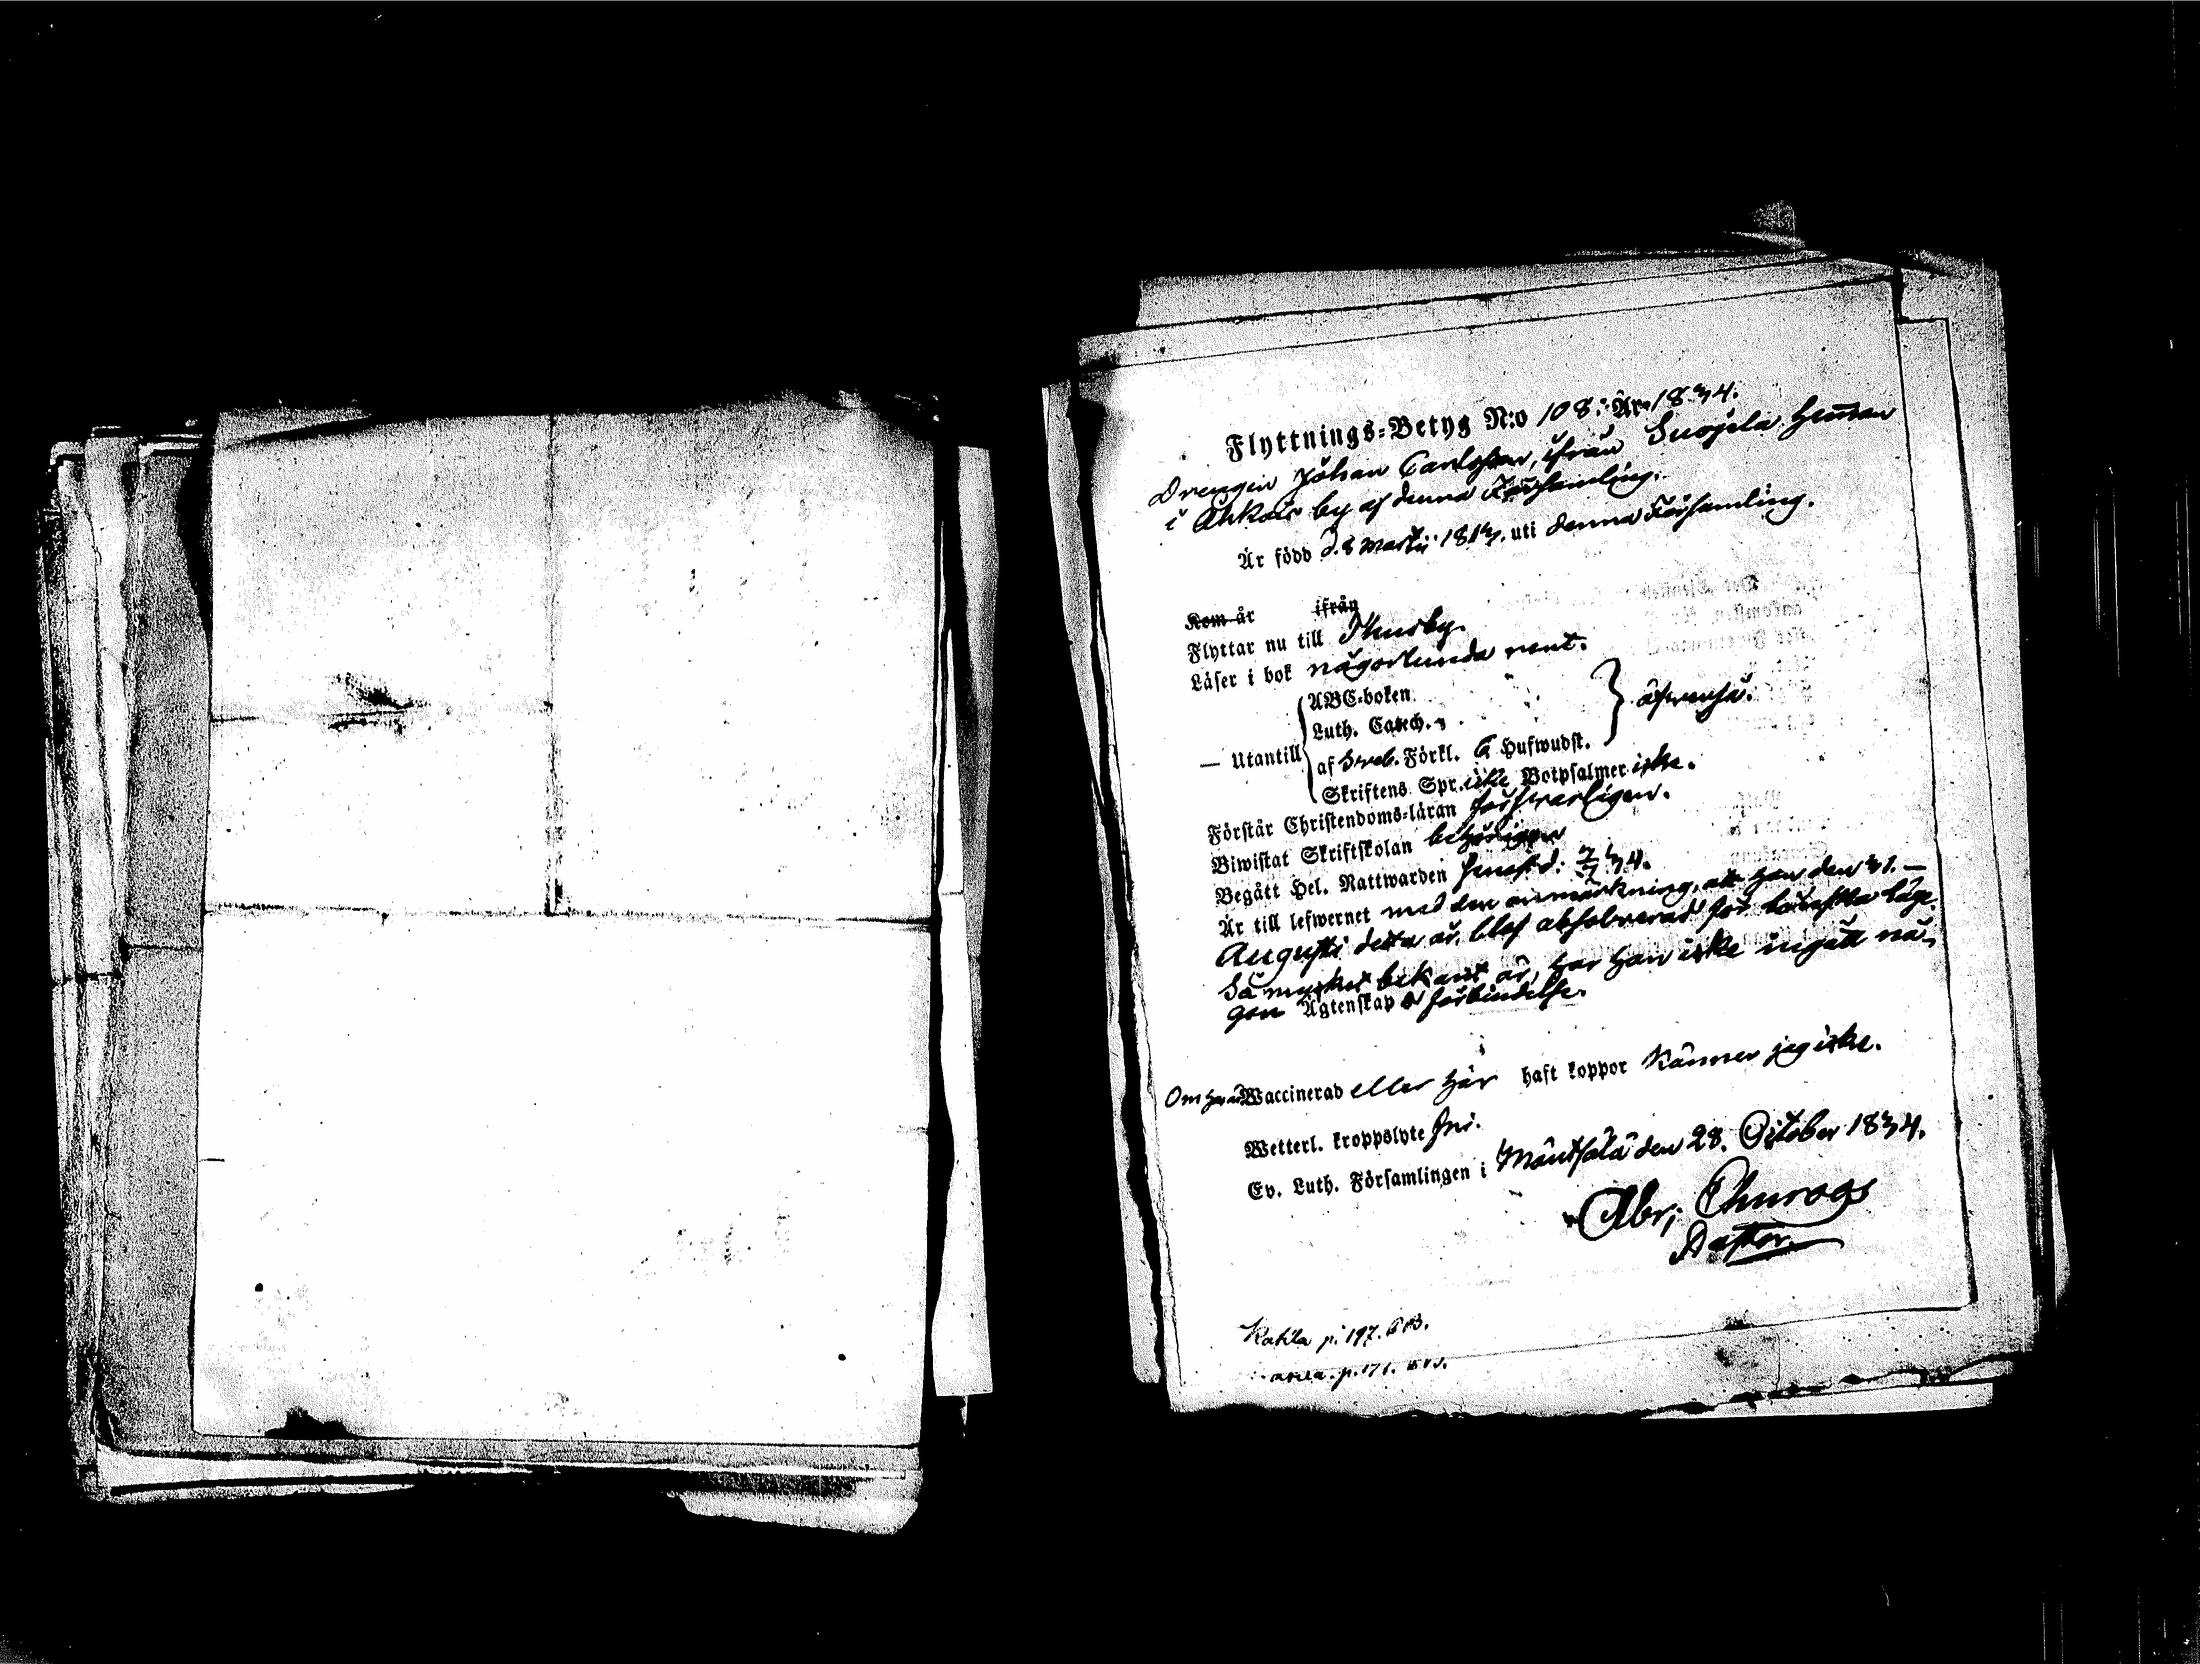 Flyttnings-Betyg N:o 108. År 1834.
Drengen Johan Carlsson, ifrån Suojela hemman
i Ahkais by af denna Församling.
Är född d. 8 Martii 1813. uti denna Församling.
Kom år ifrån
Flyttar nu till Thusby.
Läser i bok någorlunda rent.
ABC-boken
Luth. Catech.
— Utantill af Sveb. Förkl. 6 Hufwudst. } äfwenså.
Skriftens Spr. icke Botpsalmer icke.
Förstår Christendoms-läran försvarligen.
Biwistat Skriftskolan behörigen
Begått Hel. Nattwarden senast d. 34.
Är till lefwernet med den anmärkning, att han den 31.
Augusti detta år, blef absolverad för
Så mycket bekant är, har han icke ingått nå-
gon Ägtenskaps förbindelse.
Om han är Waccinerad eller har haft koppor känner jag icke.
Wetterl. kroppslyte fri.
Ev. Luth. Församlingen i Mäntsälä den 28. October 1834.
Abr;
Pastor.
p. 197.
p. 171.